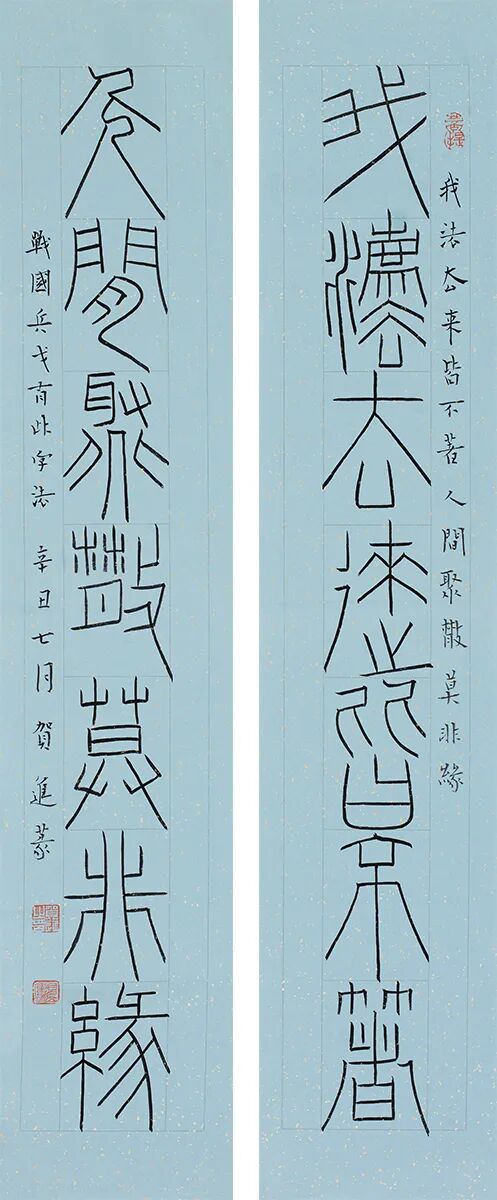 我法去来皆不著人間聚散莫非緣
我法去來皆不著
人間聚散莫非緣
戰國兵戈有此字法 辛丑七月賀進篆